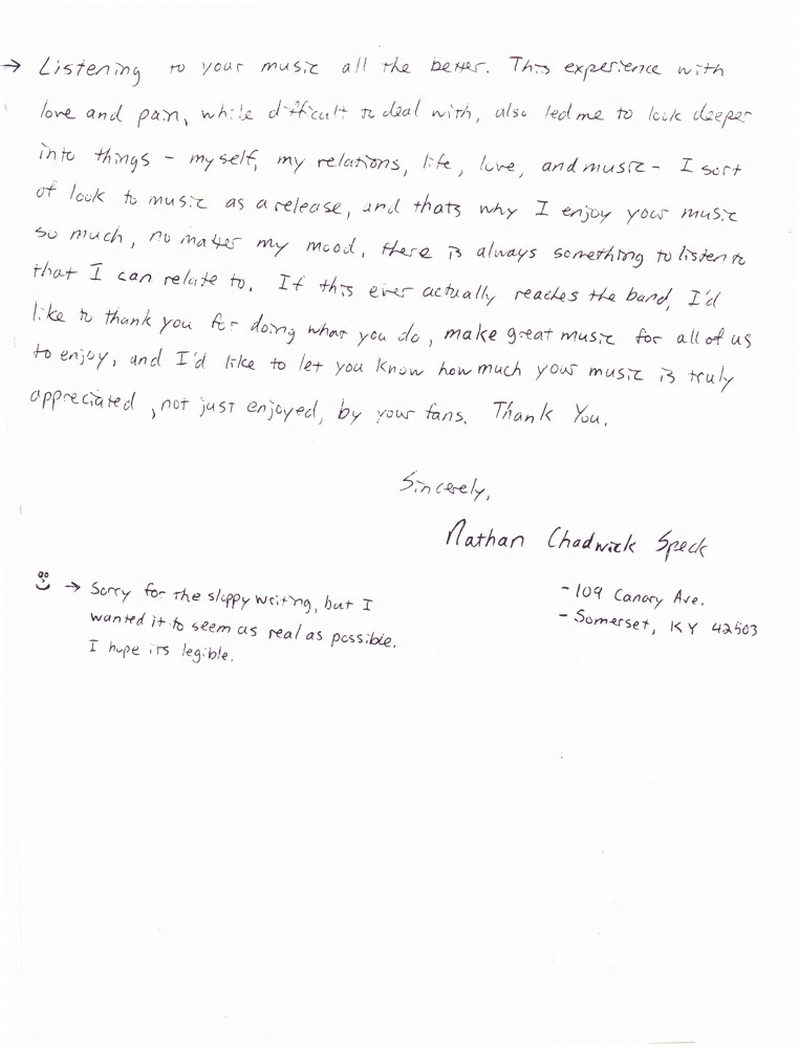 → Listening to your music all the better. This experience with
love and pain, while difficult to deal with, also led me to look deeper
into things - myself, my relations, life, love, and music - I sort
of look to music as a release, and thats why I enjoy your music
so much, no matter my mood, there is always something to listen to
that I can relate to. If this ever actually reaches the band, I'd
like to thank you for doing what you do, make great music for all of us
to enjoy, and I'd like to let you know how much your music is truly
appreciated, not just enjoyed, by your fans. Thank You.
Sincerely,
Nathan Chadwick Speck
- 109 Canary Ave.
- Somerset, KY 42503
→ Sorry for the sloppy writing, but I
wanted it to seem as real as possible.
I hope its legible.